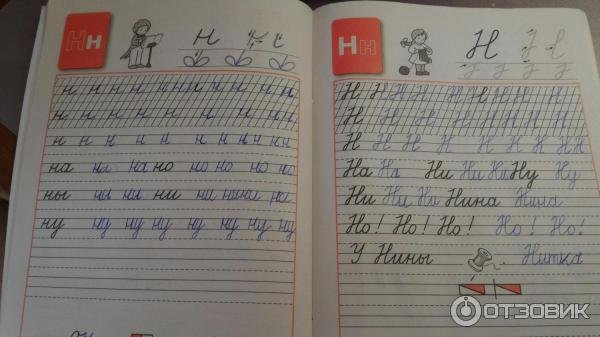 Н н
н
н н н н н н н н н н н н
н н н н н н н н
н н н н н н н н н н
на на на но но но но но
ны ны ны ни ни ни ни ни
ну ну ну ну ну ну ну
Н н
Н
Н Н Н Н Н Н Н Н Н
Н Н Н Н Н Н Н Н
Н Н Н Н Н Н Н Н Н
На На Ни Ни Ни Ну Ну
Ни Ни Ни Нина Нина
Но! Но! Но! Но! Но!
У Нины Нитка
ОТЗОВИК